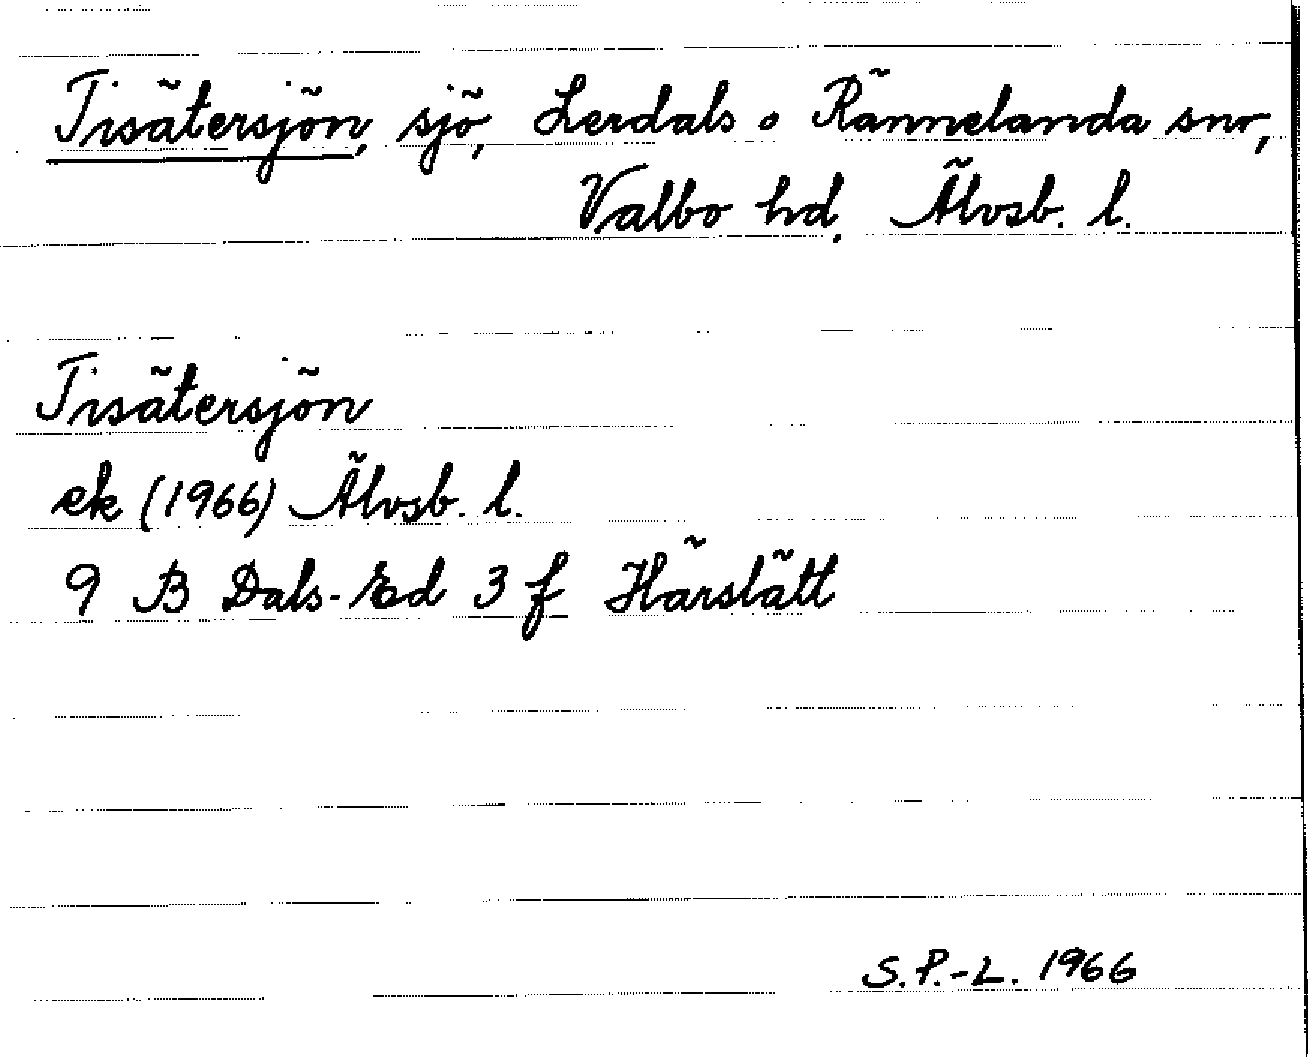 Tisätersjön, sjö, Lerdals o Rännelanda snr,
Valbo hd, Älvsb. l.
Tisätersjön
ek (1966) Älvsb. l.
9 B Dals-Ed 3 f Härslätt
S.P.-L. 1966